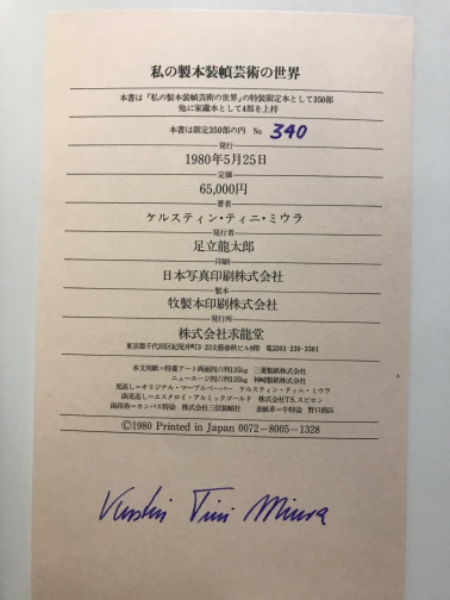 私の製本装幀芸術の世界
本書は『私の製本装幀芸術の世界』の特装限定本として350部
他に家蔵本として4部を上梓
本書は限定350部の内 № 340
発行
1980年5月25日
定価
65,000円
著者
ケルスティン・ティニ・ミウラ
発行者
足立龍太郎
印刷
日本写真印刷株式会社
製本
牧製本印刷株式会社
発行所
株式会社求龍堂
東京都千代田区紀尾井町3-23文藝春秋ビル8階 電話03-239-3381
本文用紙=特菱アート両面四六判135kg 三菱製紙株式会社
ニューエージ四六判135kg 神崎製紙株式会社
見返し=オリジナル・マーブルペーパー ケルスティン・ティニ・ミウラ
両見返し=エスタロイ・アルミックゴールド 株式会社TS.スピロン
函用布=カンバス特染 株式会社三信装幀社 表紙革=牛特染 野口商店
©1980 Printed in Japan 0072-8005-1328
Kerstin Tini Miura